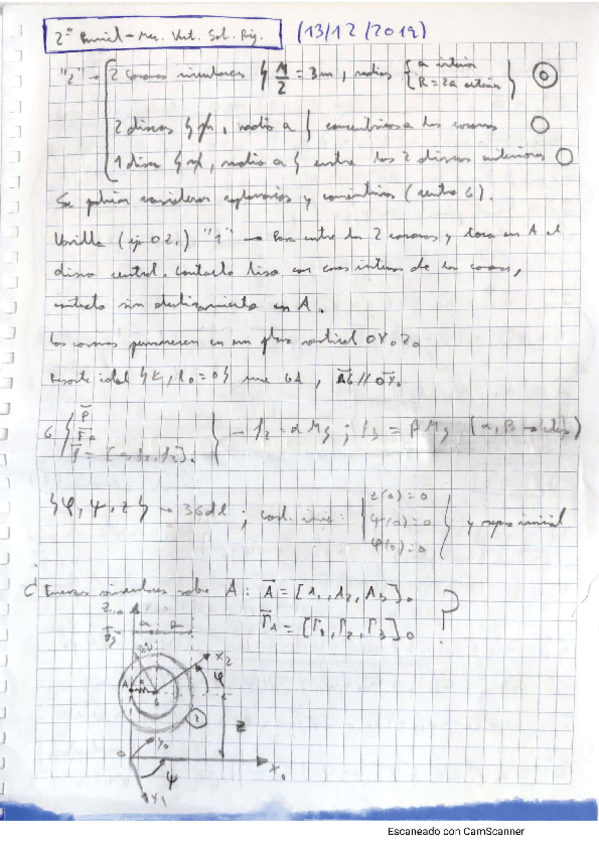 2º Parcial - Mec. Vect. Sol. Ríg. (13/12/2019)
"2" → 2 coronas circulares { M/2 = 3m, radios { a interior
R = 2a exterior } }
2 discos { m, radio a } concéntricos a las coronas
1 disco { m, radio a } entre los 2 discos anteriores
Se podrán considerar coplanarios y concéntricos (centro G).
Varilla (eje OZ₁) "1" → Pasa entre las 2 coronas y toca en A el
disco central. Contacto liso con caras internas de las coronas,
contacto sin deslizamiento en A.
Las coronas permanecen en un plano vertical OX₀Z₀
Resorte ideal {k, l₀=0} une GA, AG // OX₀
G { P
F
= [0, f₂, f₃]₀ } → f₂ = αMg ; f₃ = βMg (α, β → ctes)
{φ, ψ, z} → 3Gdl ; cond. inic: { z(0)=0
ψ(0)=0
φ(0)=0 } y reposo inicial
¿ Fuerzas vinculares sobre A : A = [A₁, A₂, A₃]₀
Γ₁ = [Γ₁, Γ₂, Γ₃]₀ ?
a a
X₂
φ
A
G
2
z
O
Y₀
X₀
ψ
X₁
Escaneado con CamScanner